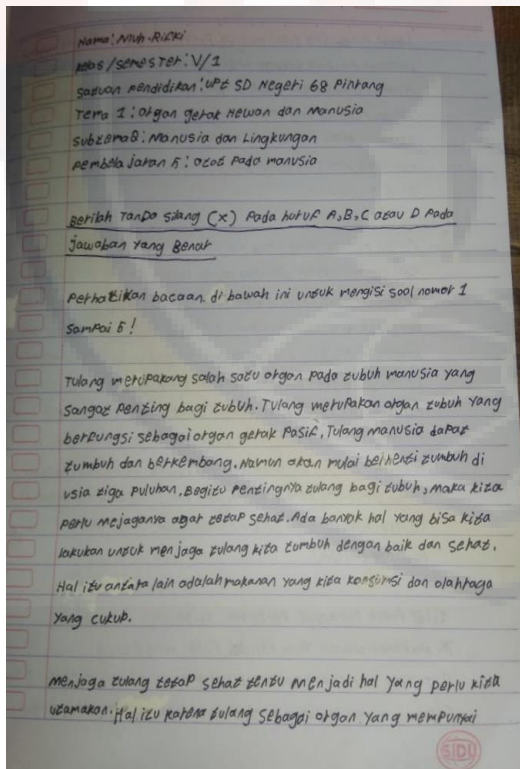 Nama: Muh. Rifki
kelas/semester: V/1
Satuan Pendidikan: UPt SD Negeri 68 Pinrang
Tema 1: Organ gerak Hewan dan Manusia
Subtema 2: Manusia dan Lingkungan
Pembelajaran 5: otot pada manusia
Berilah Tanda silang (x) Pada huruf A, B, C atau D Pada
jawaban Yang Benar
Perhatikan bacaan di bawah ini untuk mengisi soal nomor 1
Sampai 5!
Tulang merupakang salah satu organ Pada tubuh manusia yang
sangat Penting bagi tubuh. Tulang merupakan organ tubuh yang
berfungsi sebagai organ gerak Pasif, Tulang manusia dapat
tumbuh dan berkembang. Namun akan mulai berhenti tumbuh di
usia tiga puluhan. Begitu Pentingnya tulang bagi tubuh, maka kita
Perlu mejaganya agar tetap sehat. Ada banyak hal yang bisa kita
lakukan untuk menjaga tulang kita tumbuh dengan baik dan sehat.
Hal itu antara lain adalah makanan yang kita konsumsi dan olahraga
yang cukup.
menjaga tulang tetap sehat tentu menjadi hal yang perlu kita
utamakan. Hal itu karena tulang sebagai organ yang mempunyai
SIDU